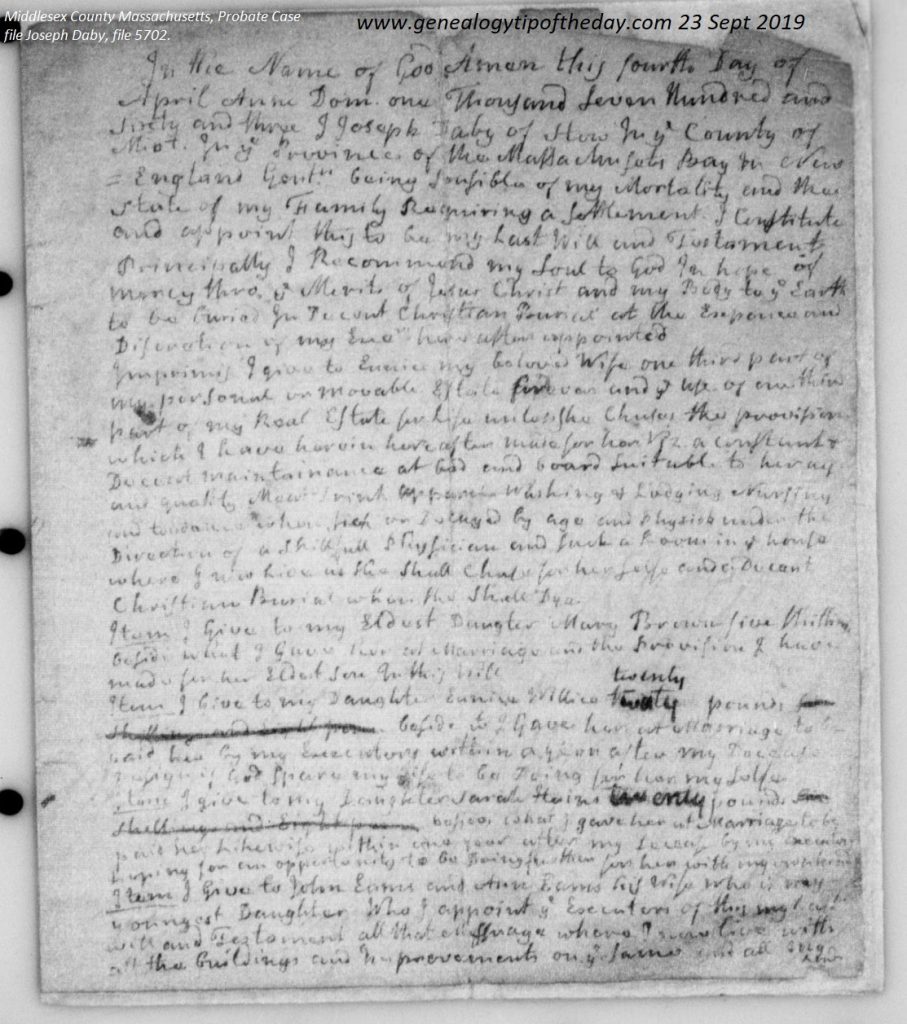 Middlesex County Massachusetts, Probate Case
file Joseph Daby, file 5702.
www.genealogytipoftheday.com 23 Sept 2019
In the Name of God Amen this fourth Day of
April Anne Dom. one Thousand Seven Hundred and
Sixty and three I Joseph Daby of Stow In ye County of
In ye Province of the Massachusets Bay In New
= England Gentn being Sensible of my Mortality and the
State of my Family Requiring a Settlement I Constitute
and appoint this to be my Last Will and Testament
Principally I Recommend my Soul to God In hope of
mercy thro. ye Merits of Jesus Christ and my Body to ye Earth
to be buried In Decent Christian Burial at the Expence and
Discretion of my hereafter appointed
Imprimis I give to Eunice my beloved Wife one third part of
my personal or movable Estate forever and ye use of one third
part of my Real Estate for life unless she Chuses the provision
which I have herein hereafter made for her Viz a constant
Decent maintainance at bed and board Suitable to her age
and quality Meat Drink Washing & Lodging Nursing
and when sick or Decayed by age and Physick under the
Direction of a Skillfull Physician and Such a Room in ye house
where I now live as She Shall Chuse for her and a Decent
Christian Burial when She Shall Dye.
Item I Give to my Eldest Daugter Mary Brown five Shillings
beside what I Gave her at Marriage and the Provision I have
made for her Eldest Son In this Will
twenty
Item I Give to my Daughter Eunice pounds
beside I Gave her at Marriage to be
paid her by my Executors within a year after my Decease
if God Spare my life to be Doing for her my Selfe
Item I give to my Daughter Sarah twenty pounds
besides what I gave her at Marriage to be
paid her likewise within one year after my Deceas by my Executors
hoping for an opportunity to be Doing further for her with my own
Item I Give to John Eams and Ann Eams his Wife who is my
youngest Daughter Who I appoint ye Executors of this my last
will and Testament all that where I now live with
all the buildings and Improvements on ye Same and all my